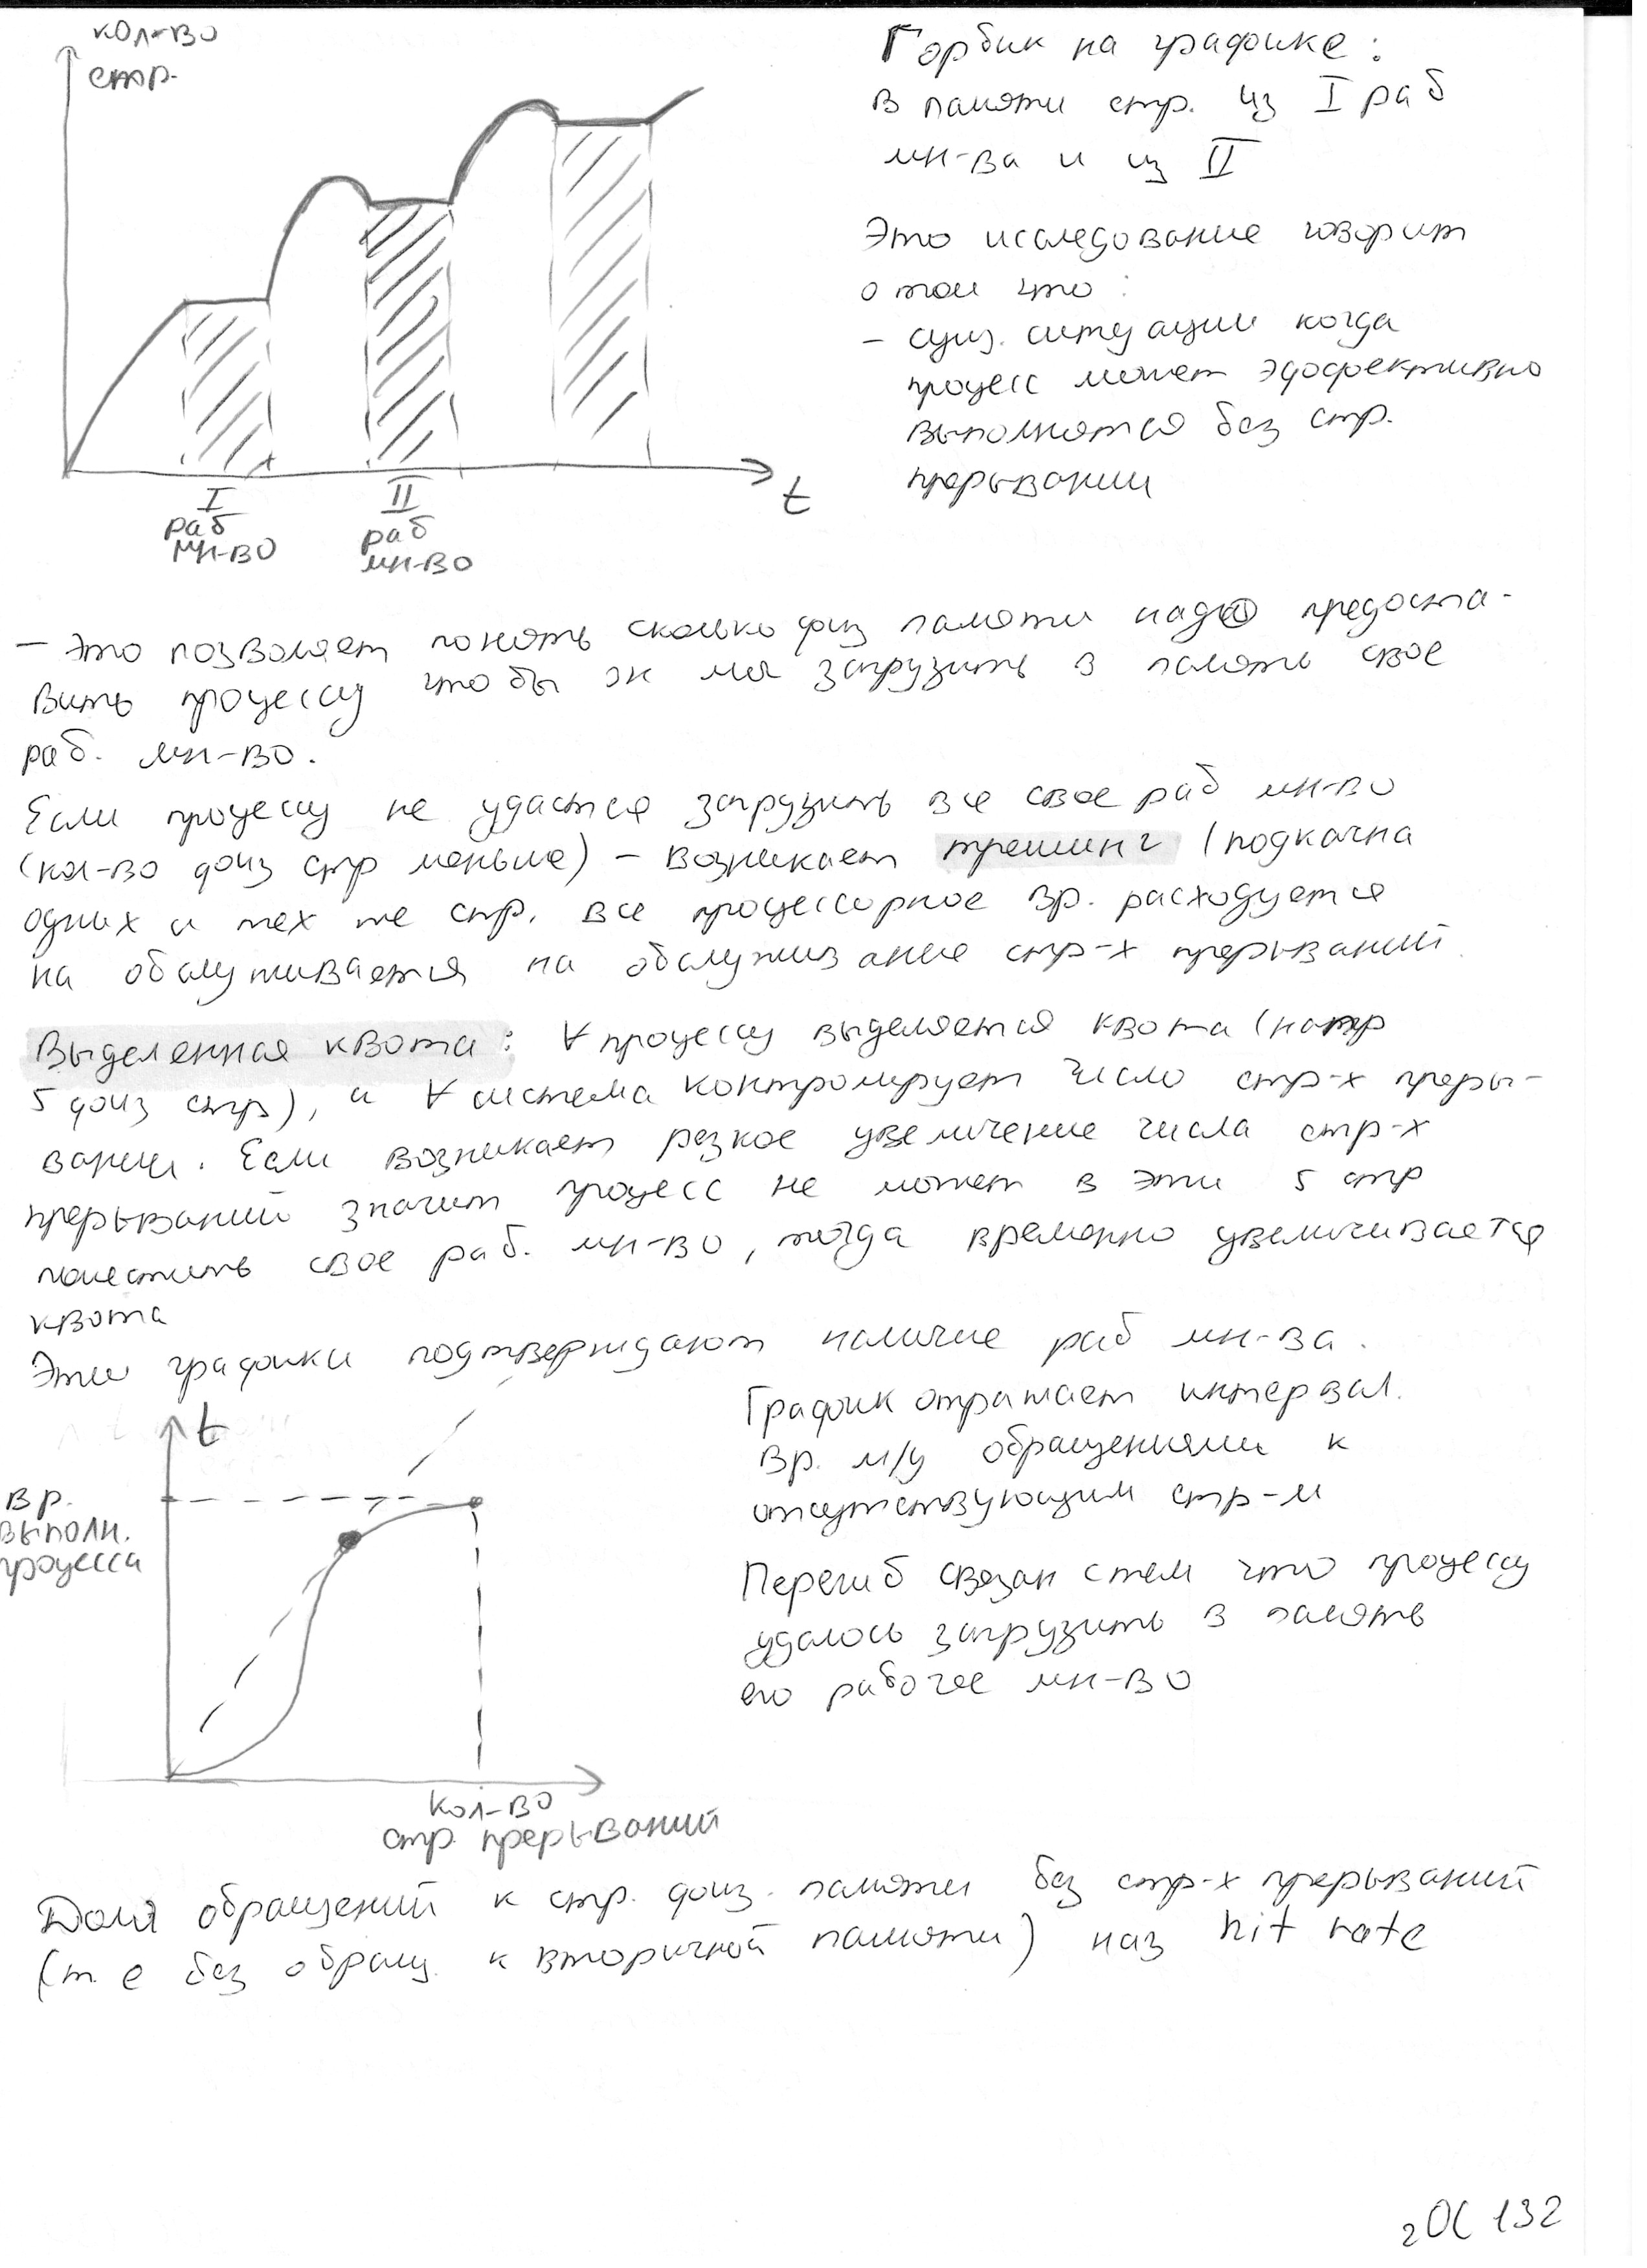 кол-во
стр.
t
I
раб
мн-во
II
раб
мн-во
Горбик на графике:
в памяти стр. из I раб
мн-ва и из II
Это исследование говорит
о том что:
- сущ. ситуации когда
процесс может эффективно
выполнятся без стр.
прерывании
- это позволяет понять сколько физ памяти надо предоста-
вить процессу чтобы он мог загрузить в память свое
раб. мн-во.
Если процессу не удастся загрузить все свое раб мн-во
(кол-во физ стр меньше) - возникает трешинг (подкачка
одних и тех же стр. все процессорное вр. расходуется
на обслуживается на обслуживание стр-х прерываний
Выделенная квота: ∀ процессу выделяется квота (напр
5 физ стр), и ∀ система контролирует число стр-х преры-
вании. Если возникает резкое увеличение числа стр-х
прерываний значит процесс не может в эти 5 стр
поместить свое раб. мн-во, тогда временно увеличивается
квота
Эти графики подтверждают наличие раб мн-ва.
t
вр.
выполн.
процесса
кол-во
стр. прерываний
График отражает интервал.
вр. м/у обращениями к
отсутствующим стр-м
Перегиб связан с тем что процессу
удалось загрузить в память
его рабочее мн-во
Доля обращений к стр. физ. памяти без стр-х прерываний
(т е без обращ. к вторичной памяти) наз hit rate
2ОС 132